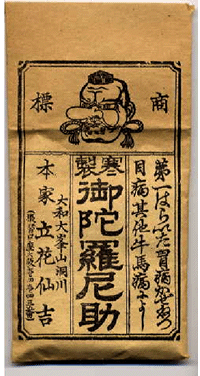 商標
第一はらいた胃病
目病其他牛馬病によし
寒製
御陀羅尼助
大和大峯山洞川
本家 立花仙吉